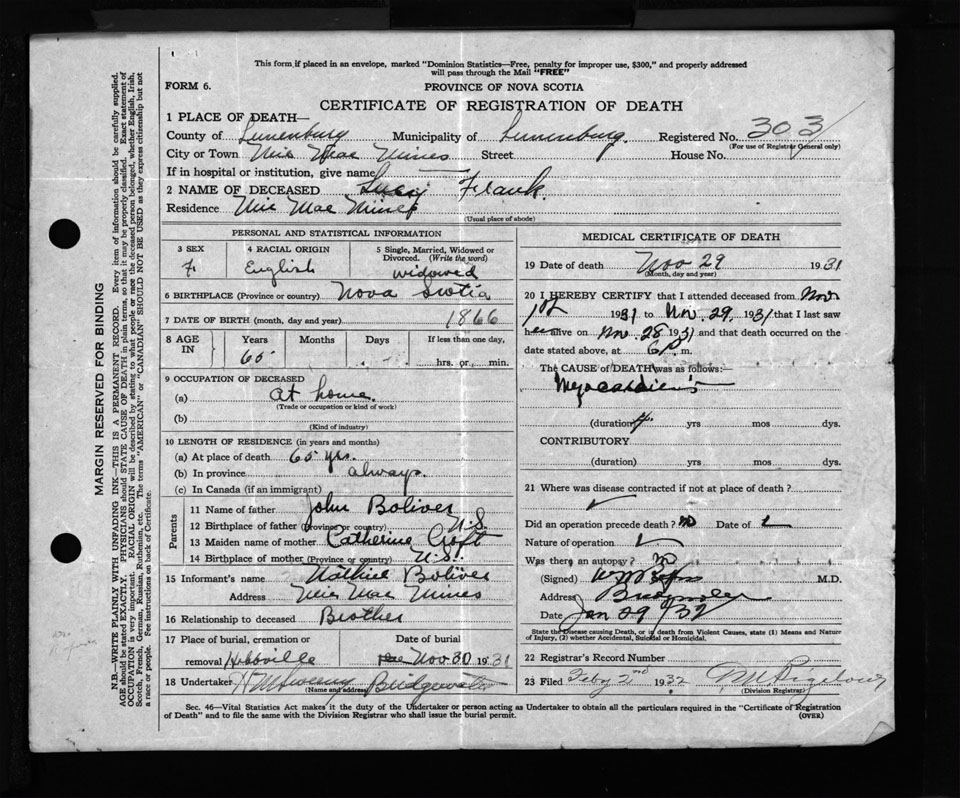 This form if placed in an envelope, marked "Dominion Statistics—Free, penalty for improper use, $300," and properly addressed
will pass through the Mail "FREE"
FORM 6.
PROVINCE OF NOVA SCOTIA
CERTIFICATE OF REGISTRATION OF DEATH
1 PLACE OF DEATH—
County of Lunenburg Municipality of Lunenburg. Registered No. 303
(For use of Registrar General only)
City or Town Mic Mac Mines Street House No.
If in hospital or institution, give name
2 NAME OF DECEASED Lucy Frank.
Residence Mic Mac Mines
(Usual place of abode)
PERSONAL AND STATISTICAL INFORMATION
3 SEX
F.
4 RACIAL ORIGIN
English
5 Single, Married, Widowed or
Divorced. (Write the word)
widowed
6 BIRTHPLACE (Province or country) Nova Scotia
7 DATE OF BIRTH (month, day and year) 1866
8 AGE
IN
Years
65
Months
Days
If less than one day,
hrs. or min.
9 OCCUPATION OF DECEASED
(a) at home.
(Trade or occupation or kind of work)
(b)
(Kind of industry)
10 LENGTH OF RESIDENCE (in years and months)
(a) At place of death 65 yrs.
(b) In province always.
(c) In Canada (if an immigrant)
Parents
11 Name of father John Boliver
12 Birthplace of father (Province or country) N.S.
13 Maiden name of mother Catherine Croft
14 Birthplace of mother (Province or country) N.S.
15 Informant's name Boliver
Address Mic Mac Mines
16 Relationship to deceased Brother
17 Place of burial, cremation or
removal Hebbville
Date of burial
Nov 30 1931
18 Undertaker Bridgewater
(Name and address)
MEDICAL CERTIFICATE OF DEATH
19 Date of death Nov 29 1931
(Month, day and year)
20 I HEREBY CERTIFY that I attended deceased from Nov
1st 1931 to Nov. 29 1931 that I last saw
her alive on Nov. 28 1931 and that death occurred on the
date stated above, at 6 P. m.
The CAUSE OF DEATH was as follows:—
(duration) yrs mos dys.
CONTRIBUTORY
(duration) yrs mos dys.
21 Where was disease contracted if not at place of death?
Did an operation precede death? no Date of
Nature of operation
Was there an autopsy? no
(Signed) M.D.
Address
Date Jan 29/32
State the Disease causing Death, or in death from Violent Causes, state (1) Means and Nature
of Injury, (2) whether Accidental, Suicidal or Homicidal.
22 Registrar's Record Number
23 Filed Feby 2nd 1932
(Division Registrar)
Sec. 46—Vital Statistics Act makes it the duty of the Undertaker or person acting as Undertaker to obtain all the particulars required in the "Certificate of Registration
of Death" and to file the same with the Division Registrar who shall issue the burial permit.
(OVER)
MARGIN RESERVED FOR BINDING
N.B.—WRITE PLAINLY WITH UNFADING INK—THIS IS A PERMANENT RECORD. Every item of information should be carefully supplied.
AGE should be stated EXACTLY. PHYSICIANS should STATE CAUSE OF DEATH in plain terms, so that it may be properly classified. Exact statement of
OCCUPATION is very important. RACIAL ORIGIN will be described by stating to what people or race the deceased person belonged, whether English, Irish,
Scotch, French, German, Russian, Ruthenian, etc. The terms "AMERICAN" or "CANADIAN" SHOULD NOT BE USED as they express citizenship but not
a race or people. See instructions on back of Certificate.